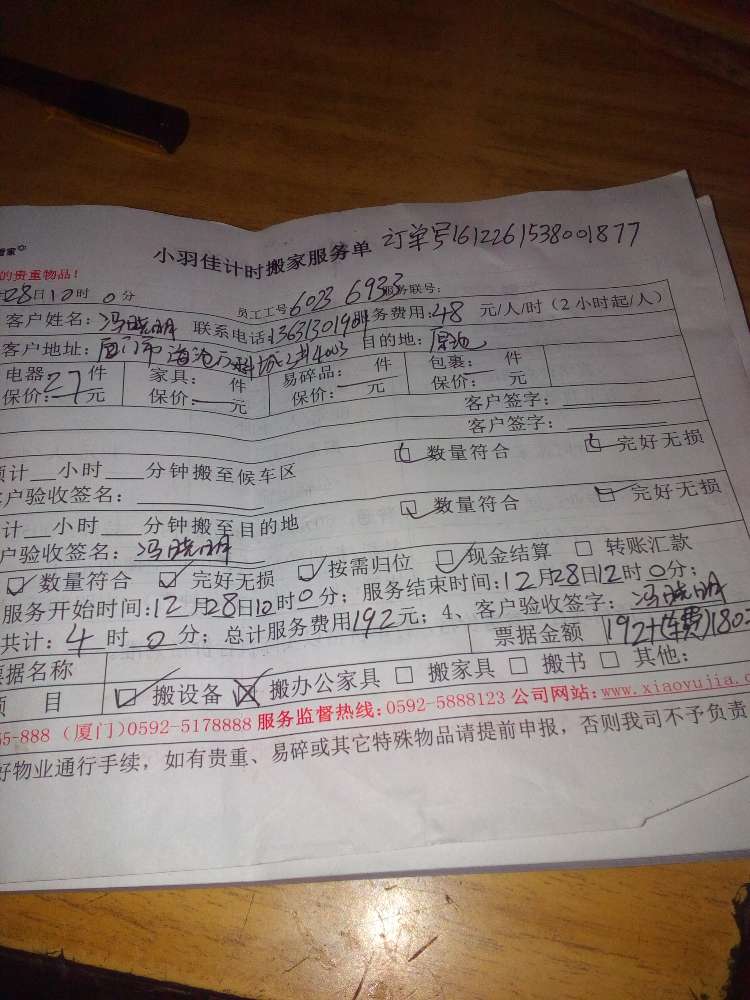 小羽佳计时搬家服务单 订单号1612261538001877
的贵重物品!
28日10时0分 员工工号6023 6933 服务联号:
客户姓名:冯晓明 联系电话: 务费用:48 元/人/时(2小时起/人)
客户地址:厦门市海沧 目的地:
电器27件 家具: 件 易碎品: 件 包裹: 件
保价: 元 保价: 元 保价: 元 保价: 元
客户签字:
客户签字:
预计 小时 分钟搬至候车区 数量符合 完好无损
客户验收签名:
计 小时 分钟搬至目的地 数量符合 完好无损
户验收签名:冯晓明
数量符合 完好无损 按需归位 现金结算 转账汇款
服务开始时间:12月28日10时0分; 服务结束时间:12月28日12时0分;
共计:4时0分; 总计服务费用192元; 4、客户验收签字:冯晓明
票据名称 票据金额 192+(车费)180
项 目 搬设备 搬办公家具 搬家具 搬书 其他:
-888 (厦门)0592-5178888 服务监督热线:0592-5888123 公司网站:www.xiaoyujia.c
好物业通行手续,如有贵重、易碎或其它特殊物品请提前申报,否则我司不予负责